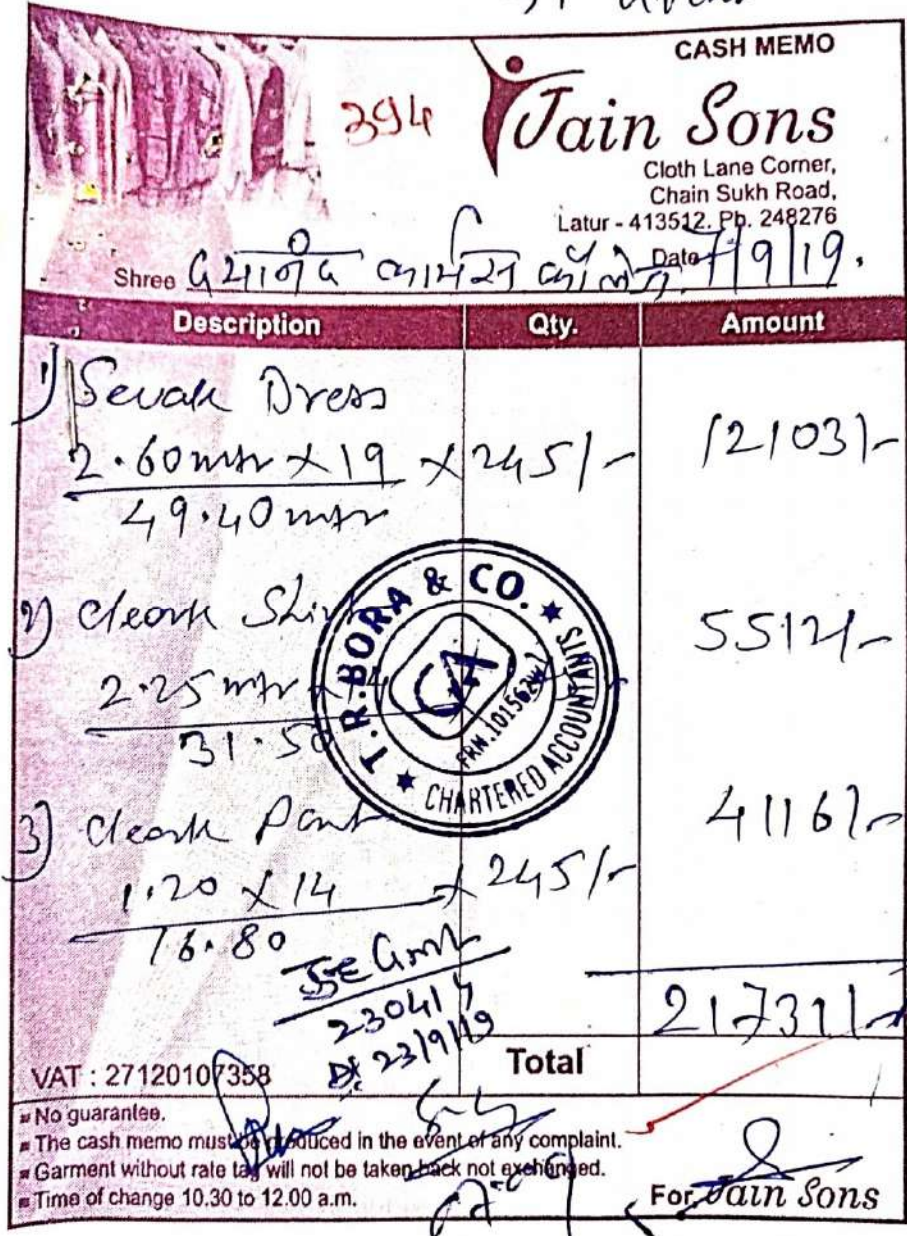 CASH MEMO
394
Jain Sons
Cloth Lane Corner,
Chain Sukh Road,
Latur - 413512. Ph. 248276
Shree दयानंद कॉमर्स कॉलेज Date 7/9/19.
Description Qty. Amount
1) Sevak Dress
2.60 mtr x 19 x 245/- 12103/-
49.40 mtr
2) Cleark Shirt 5512/-
2.25 mtr x 14
31.50
3) Cleark Pant 4116/-
1.20 x 14 x 245/-
16.80
T.R.BORA & CO.
CA
FRN.101562W
CHARTERED ACCOUNTANTS
23041
Dt 23/9/19
21731/-
Total
VAT : 27120107358
No guarantee.
The cash memo must be produced in the event of any complaint.
Garment without rate tag will not be taken back not exchanged.
Time of change 10.30 to 12.00 a.m.
For, Jain Sons